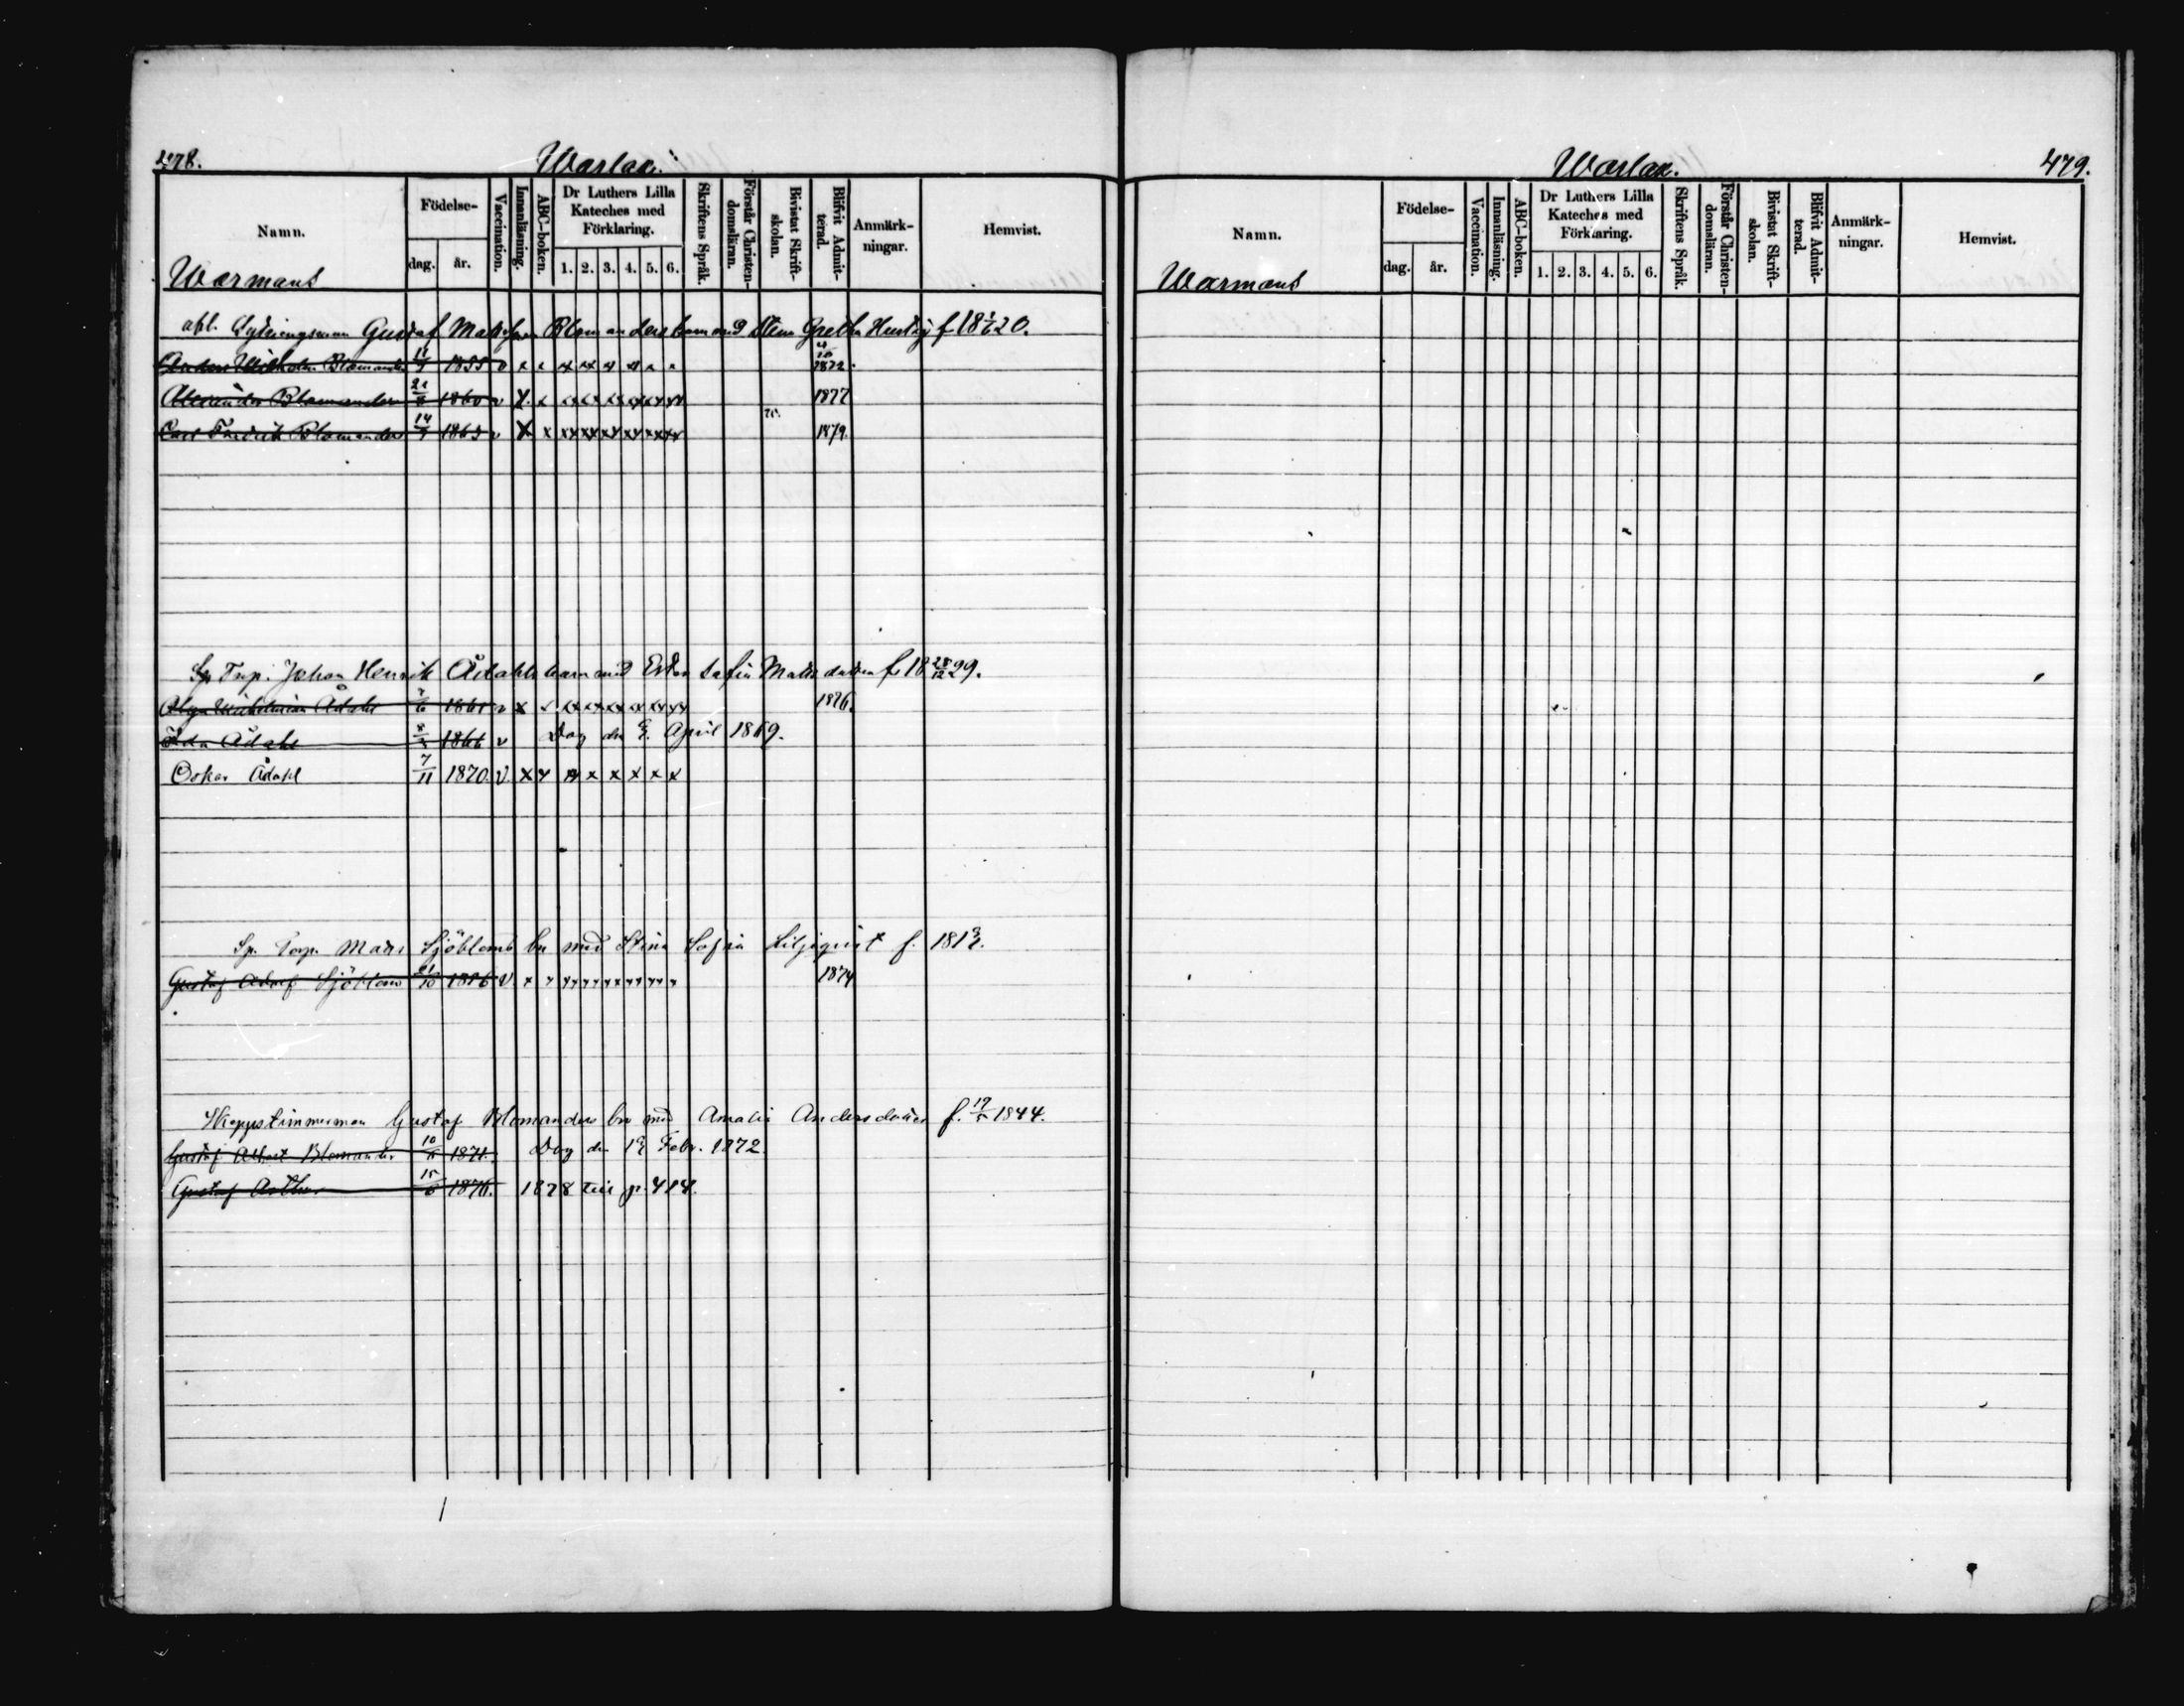 478.
Warlax.
Namn.
Födelse-
dag.
år.
Vaccination.
Innanläsning.
ABC-boken.
Dr Luthers Lilla Kateches med Förklaring.
1. 2. 3. 4. 5. 6.
Skriftens Språk.
Förstår Christendomsläran.
Bivistat Skriftskolan.
Blifvit Admitterad.
Anmärkningar.
Hemvist.
Warmans
Gustaf Blomanders barn med Stina Gretha f 18 20.
Anders Wilhelm Blomander 1855 v x x x x x x x x 1872.
Alexander Blomander 21 1860 v x x xx xx xx xx xx xx 1877
Carl Fredrik Blomander 14 1863 v x x xx xx xx xx xx xx 1879.
Sp Torp. Johan Henrik Ådahls barn med Sofia Matsdotter f. 18 28/12 29.
Olga Wilhelmina Ådahl 1861 v x x xx xx xx xx xx xx 1876.
Ida Ådahl 1866 v Dog den April 1869.
Oskar Ådahl 7/11 1870. V. x x x x x x x x
Sp. Torp. Mats Sjöbloms bn med Stina Sofia Liljeqvist f. 181
Gustaf Adolf Sjöblom 21/10 1856 V. x x xx xx xx xx xx x 1874
Skeppstimmerman Gustaf Blomanders bn med Amalia Andersdotter f. 1844.
Gustaf Albert Blomander 10 1871. Dog den Febr. 1872.
Gustaf Arthur 15 1876. 1878 till p. 414.
Warlax.
479.
Namn.
Födelse-
dag.
år.
Vaccination.
Innanläsning.
ABC-boken.
Dr Luthers Lilla Kateches med Förklaring.
1. 2. 3. 4. 5. 6.
Skriftens Språk.
Förstår Christendomsläran.
Bivistat Skriftskolan.
Blifvit Admitterad.
Anmärkningar.
Hemvist.
Warmans